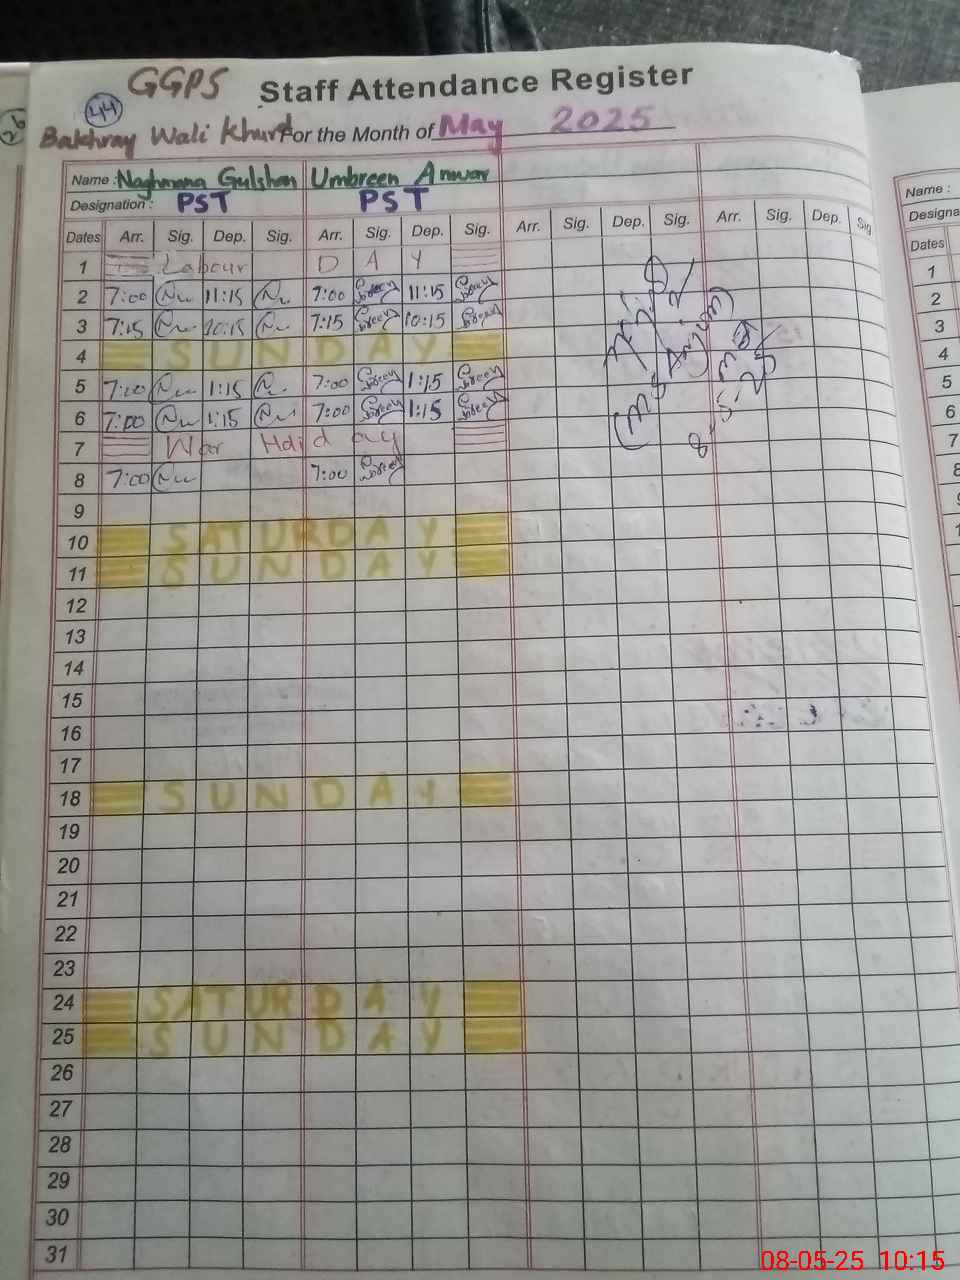 26
GGPS Staff Attendance Register
44
Bakhray Wali Khurd For the Month of May 2025
Name : Naghmana Gulshan Umbreen Anwar
Designation : PST PST
Dates Arr. Sig. Dep. Sig. Arr. Sig. Dep. Sig. Arr. Sig. Dep. Sig. Arr. Sig. Dep. Sig
1 Labour DAY
2 7:00 11:15 7:00 11:15
3 7:15 10:15 7:15 10:15
4 SUNDAY
5 7:00 1:15 7:00 1:15
6 7:00 1:15 7:00 1:15
7 War Holiday
8 7:00 7:00
9
10 SATURDAY
11 SUNDAY
12
13
14
15
16
17
18 SUNDAY
19
20
21
22
23
24 SATURDAY
25 SUNDAY
26
27
28
29
30
31
8-5-25
Name :
Designa
Dates
1
2
3
4
5
6
7
8
08-05-25 10:15